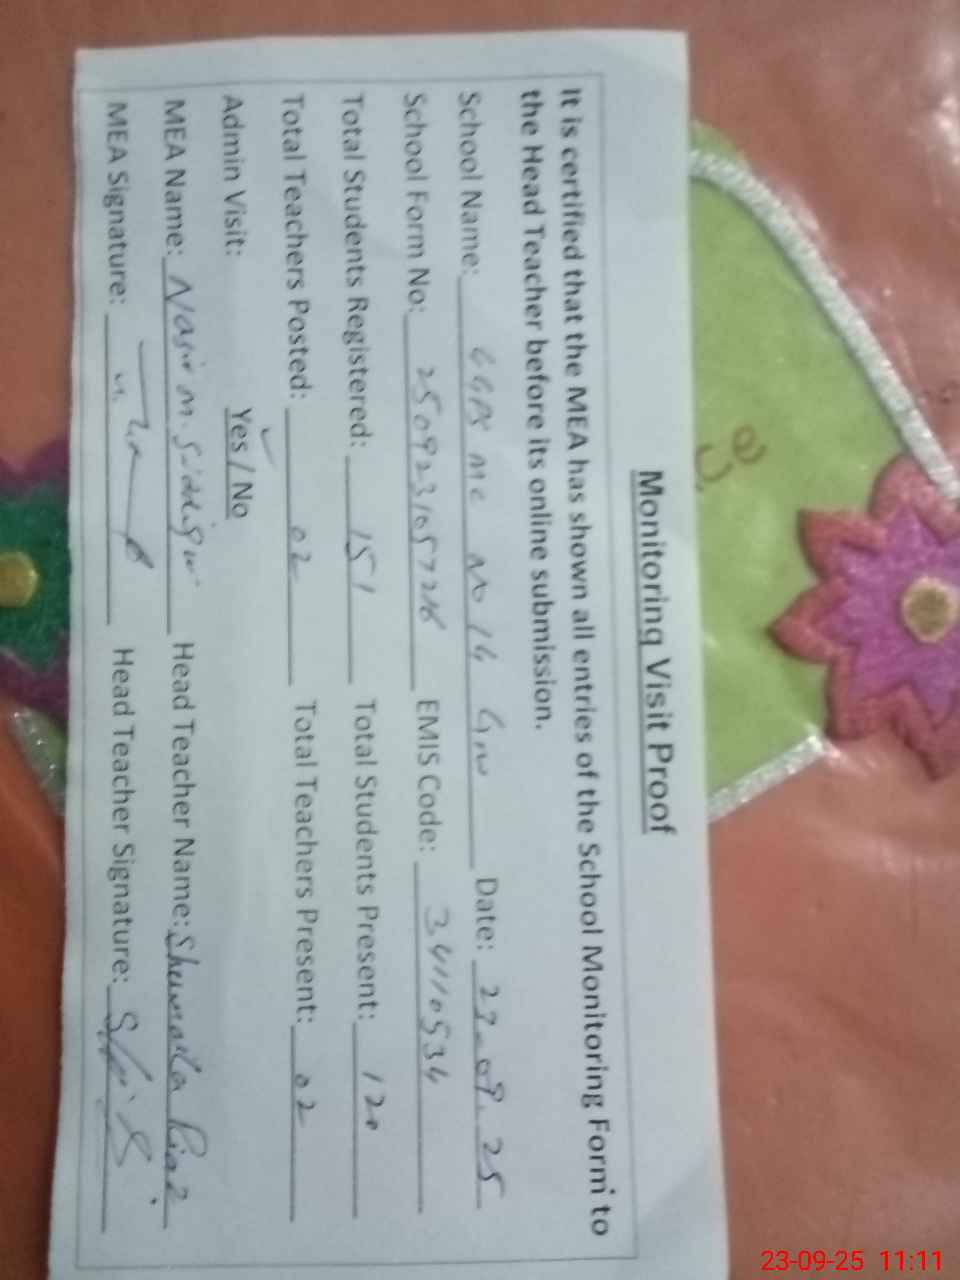 Monitoring Visit Proof
It is certified that the MEA has shown all entries of the School Monitoring Form to
the Head Teacher before its online submission.
School Name: GGPS MC No 14 GW Date: 23-09-25
School Form No: EMIS Code: 34110534
Total Students Registered: 151 Total Students Present: 120
Total Teachers Posted: 02 Total Teachers Present: 02
Admin Visit: Yes / No
MEA Name: Nasir M. Head Teacher Name: Shumaila Riaz
MEA Signature: Head Teacher Signature:
23-09-25 11:11